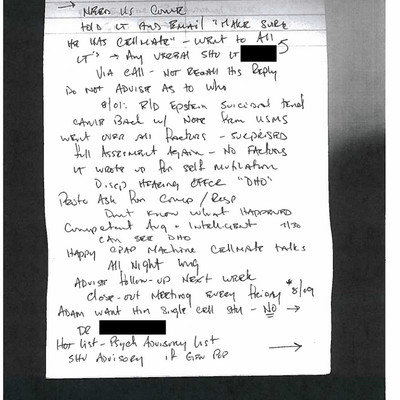 → NEED US COVER
TOLD LT AND EMAIL "MAKE SURE
HE HAS CELLMATE" - WENT TO ALL
LT'S → ANY VERBAL SHU LT
VIA CALL - NOT RECALL HIS REPLY
DO NOT ADVISE AS TO WHO
8/01: Epstein SUICIDAL
CAME BACK w/ NOTE FROM USMS
WENT OVER ALL FACTORS - SURPRISED
FULL ASSESSMENT AGAIN - NO FACTORS
LT WROTE UP FOR SELF MUTILATION
DISCP HEARING OFFCR "DHO"
ASK FOR COMP / RESP
DON'T KNOW WHAT HAPPENED
COMPETENT AVG + INTELLIGENT 7/30
CAN SEE DHO
HAPPY CPAP MACHINE CELLMATE TALKS
ALL NIGHT LONG
ADVISE FOLLOW-UP NEXT WEEK
CLOSE-OUT MEETING EVERY FRIDAY * 8/09
ADAM WANT HIM SINGLE CELL SHU - NO →
DR
HOT LIST - PSYCH ADVISORY LIST
SHU ADVISORY IF GEN POP →